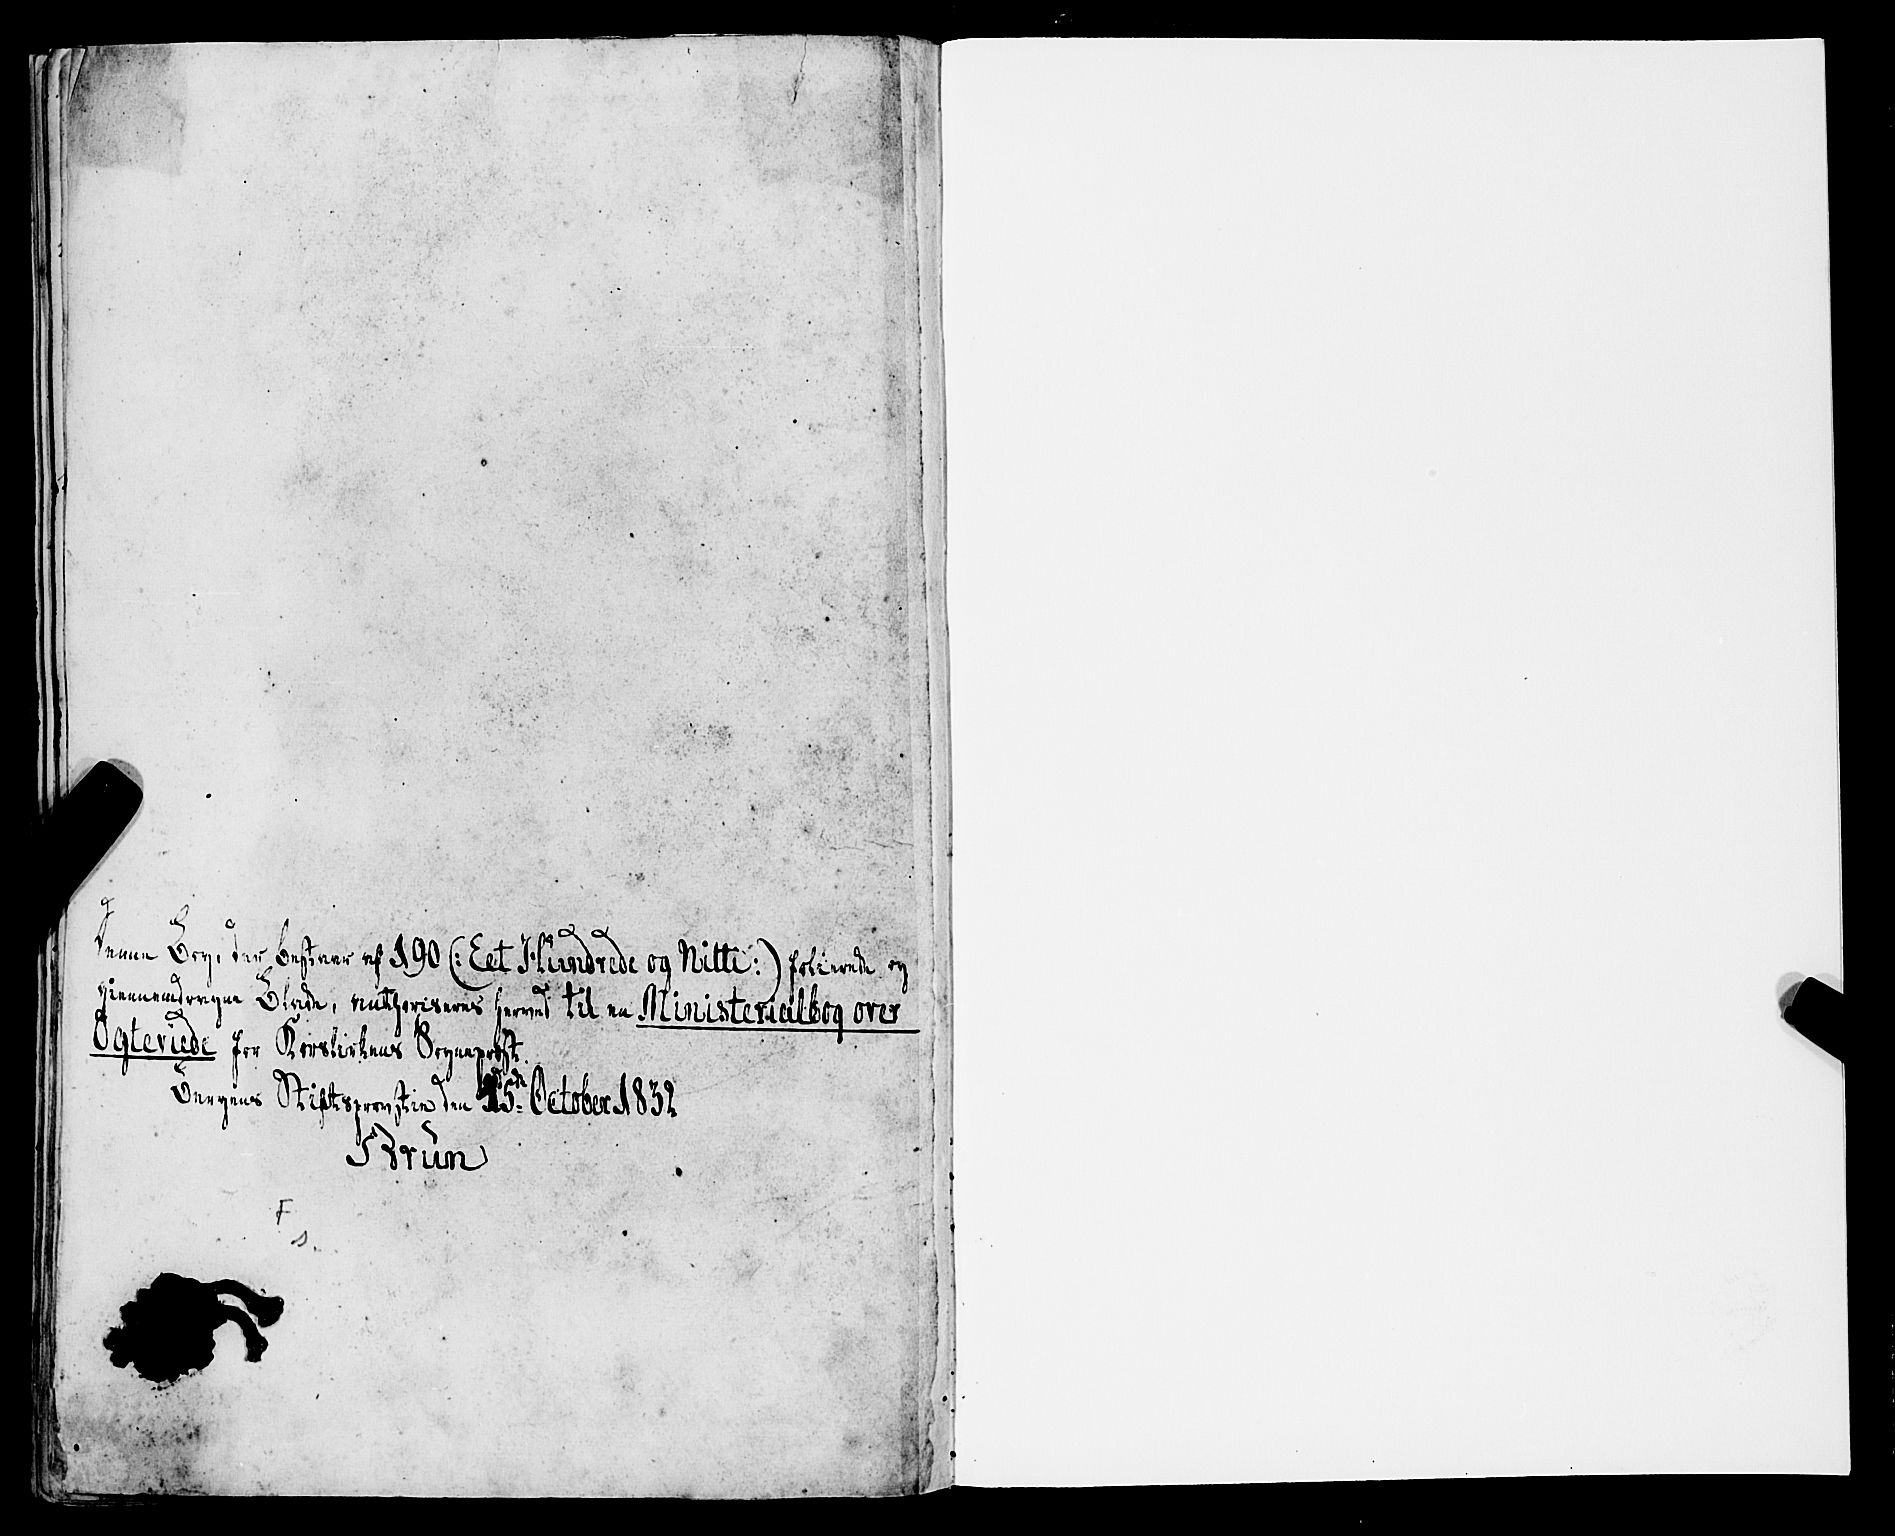 Denne Bog, der bestaaer af 190 (: Eet Hundrede og Nitti :) folierede og
giennemdragne Blade, authoriseres herved til en Ministerialbog over
Ægteviede for Korskirkens Sogneprest.
Bergens Stiftsprovstie den 15de October 1832
JBrun
F
s.